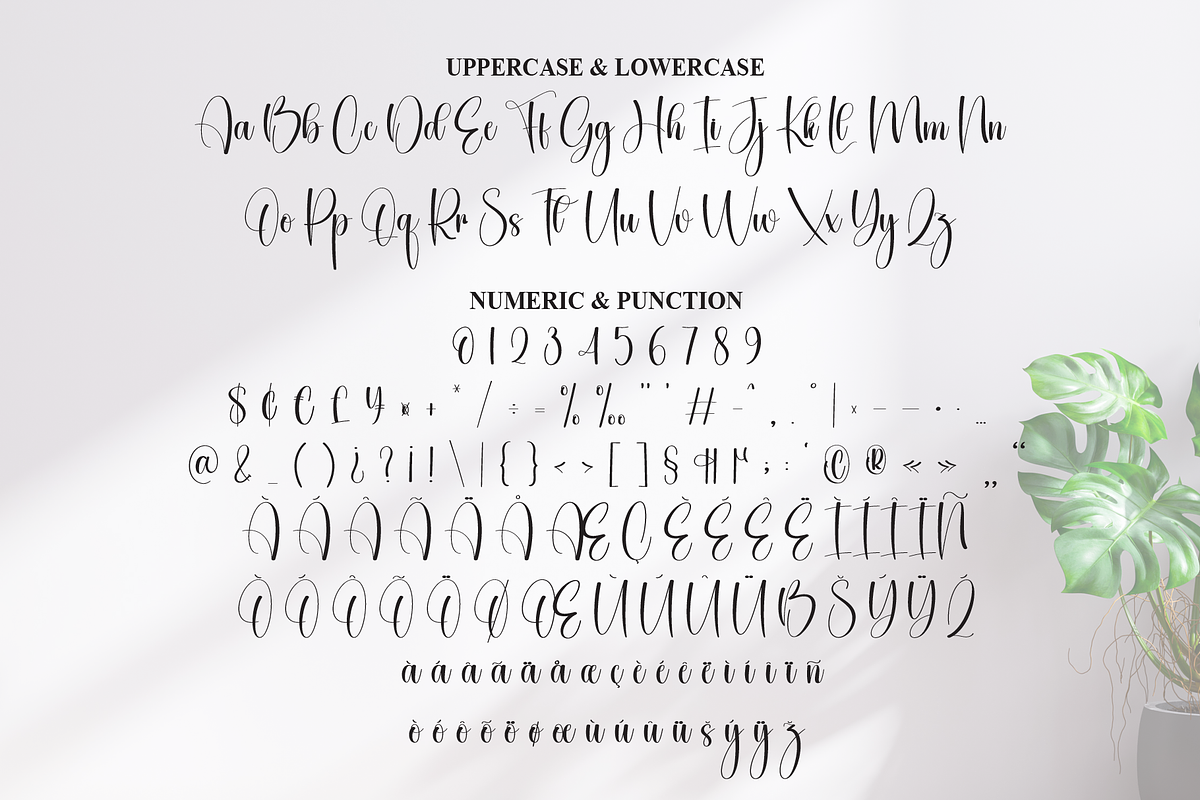 UPPERCASE & LOWERCASE
Aa Bb Cc Dd Ee Ff Gg Hh Ii Jj Kk Ll Mm Nn
Oo Pp Qq Rr Ss Tt Uu Vv Ww Xx Yy Zz
NUMERIC & PUNCTION
0 1 2 3 4 5 6 7 8 9
$ ¢ € £ ¥ ¤ + * / ÷ = % ‰ " ' # - ^ , . ° | × – — • · …
@ & _ ( ) ¿ ? ¡ ! \ | { } < > [ ] § ¶ µ ; : ‘ © ® « » „ “
À Á Â Ã Ä Å Æ Ç È É Ê Ë Ì Í Î Ï Ñ
Ò Ó Ô Õ Ö Ø Œ Ù Ú Û Ü ß Š Ý Ÿ Ž
à á â ã ä å æ ç è é ê ë ì í î ï ñ
ò ó ô õ ö ø œ ù ú û ü š ý ÿ ž